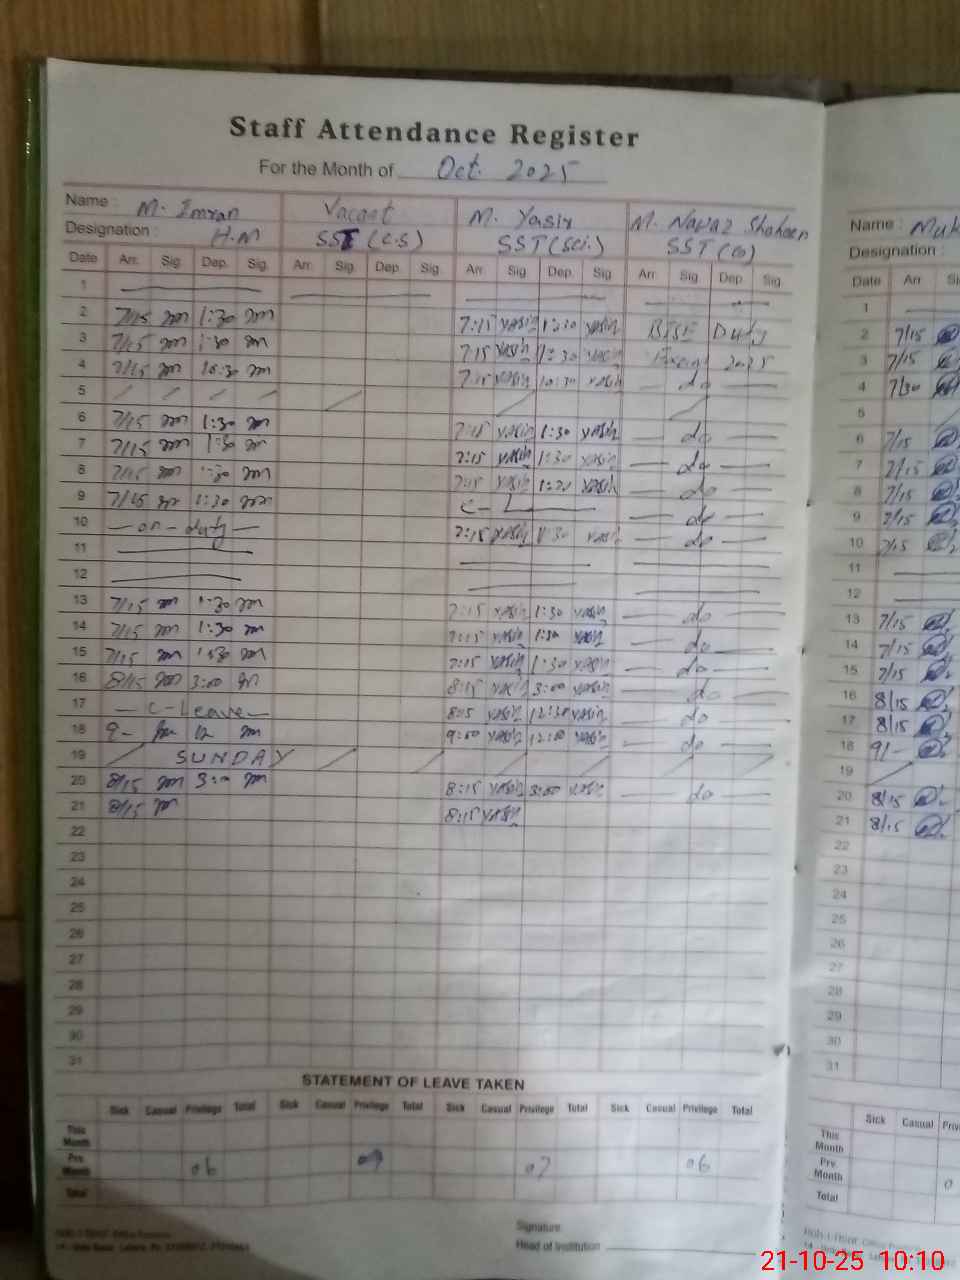 Staff Attendance Register
For the Month of Oct. 2025
Name : M. Imran Vacant M. Yasir M. Nawaz Shaheen Name : Muk
Designation : H.M SST (C.S) SST (Sci.) SST (G) Designation :
Date Arr. Sig. Dep. Sig. Arr. Sig. Dep. Sig. Arr. Sig. Dep. Sig. Arr. Sig. Dep. Sig. Date Arr. Si
1 1
2 7/15 1:30 7:15 yasir 1:30 yasir BISE Duty 2 7/15
3 7/15 1:30 7:15 yasir 1:30 yasir 2025 3 7/15
4 7/15 10:30 7:15 yasir 10:30 yasir do 4 7/30
5 5
6 7/15 1:30 7:15 yasir 1:30 yasir do 6 7/15
7 7/15 1:30 7:15 yasir 1:30 yasir do 7 7/15
8 7/15 1:30 7:15 yasir yasir do 8 8/15
9 7/15 1:30 C - L do 9 7/15
10 - on - duty - 7:15 yasir 1:30 yasir do 10 7/15
11 11
12 12
13 7/15 1:30 7:15 yasir 1:30 yasir do 13 7/15
14 7/15 1:30 7:15 yasir 1:30 yasir do 14 7/15
15 7/15 1:30 7:15 yasir 1:30 yasir do 15 7/15
16 8/15 3:00 8:15 yasir 3:00 yasir do 16 8/15
17 - C-Leave - 8:15 yasir 12:30 yasir do 17 8/15
18 9- 12 9:00 yasir 12:00 yasir do 18 9/-
19 SUNDAY 19
20 8/15 3:00 8:15 yasir 3:00 yasir do 20 8/15
21 8/15 8:15 yasir 21 8/15
22 22
23 23
24 24
25 25
26 26
27 27
28 28
29 29
30 30
31 31
STATEMENT OF LEAVE TAKEN
Sick Casual Privilege Total Sick Casual Privilege Total Sick Casual Privilege Total Sick Casual Privilege Total Sick Casual Privi
This Month This Month
Prv. Month 06 07 07 06 Prv. Month 0
Total Total
Signature
Head of Institution
21-10-25 10:10